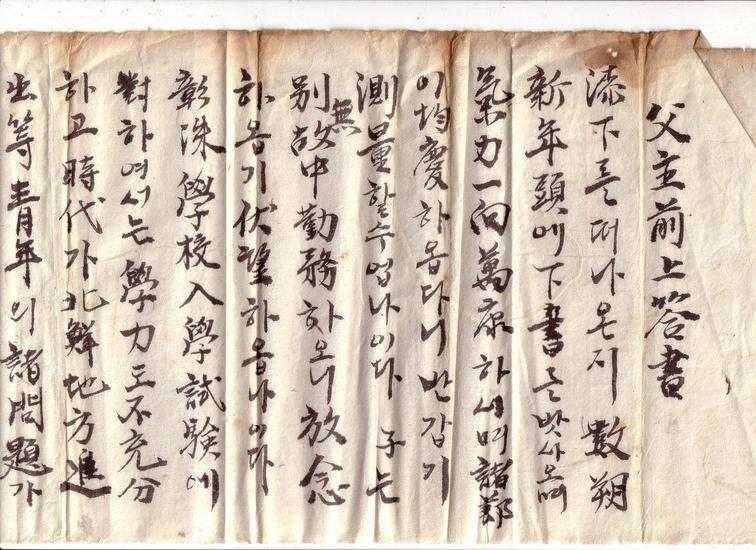 父主前上答書
漆下를떠나온지 數朔
新年頭에下書를밧사오며
氣力一向萬康하시며諸節
이均慶하옵다니반갑기
測量할수업나이다 子는
別無故中勤務하오니放念
하옵기伏望하옵나이다
彰洙學校入學試驗에
對하여서는學力도不充分
하고時代가北鮮地方進
出等靑年의諸問題가